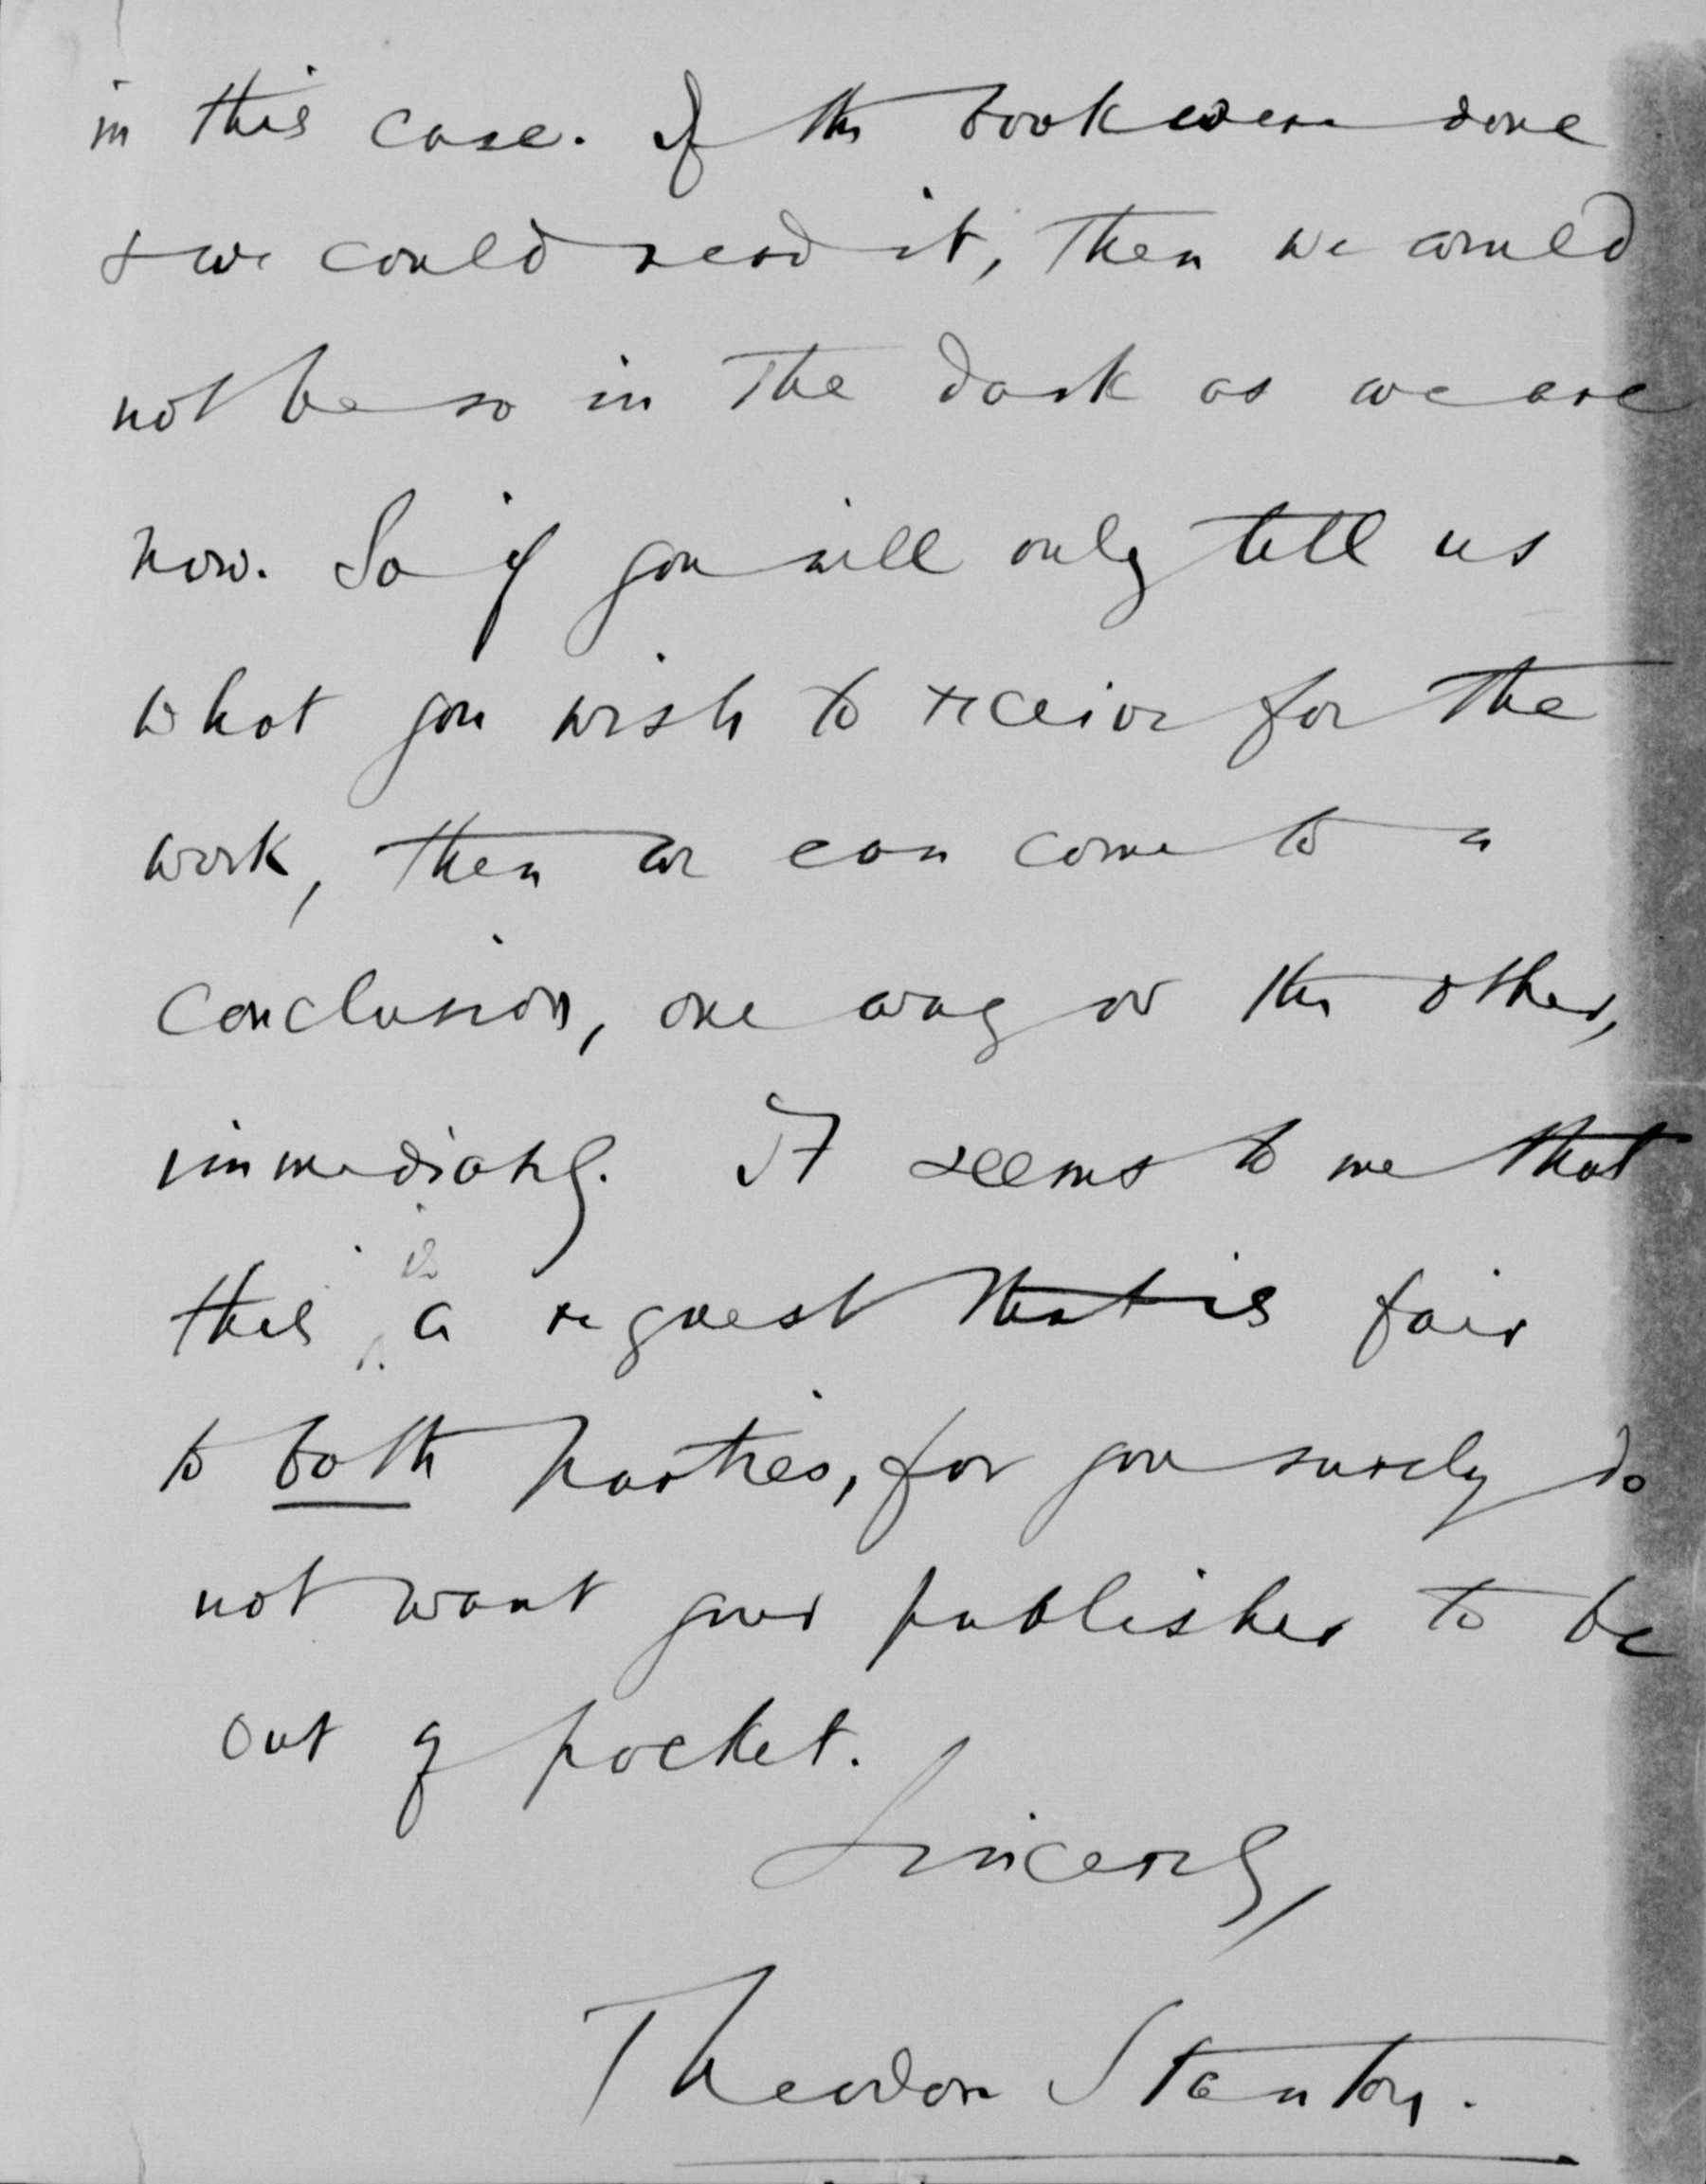 in this case. If the book were done
& we could read it, then we would
not be so in the dark as we are
now. So if you will only tell us
what you wish to receive for the
work, then we can come to a
conclusion, one way or the other,
immediately. It seems to me that
this is a request that is fair
to both parties, for you surely do
not want your publisher to be
out of pocket.
Sincerely,
Theodore Stanton.